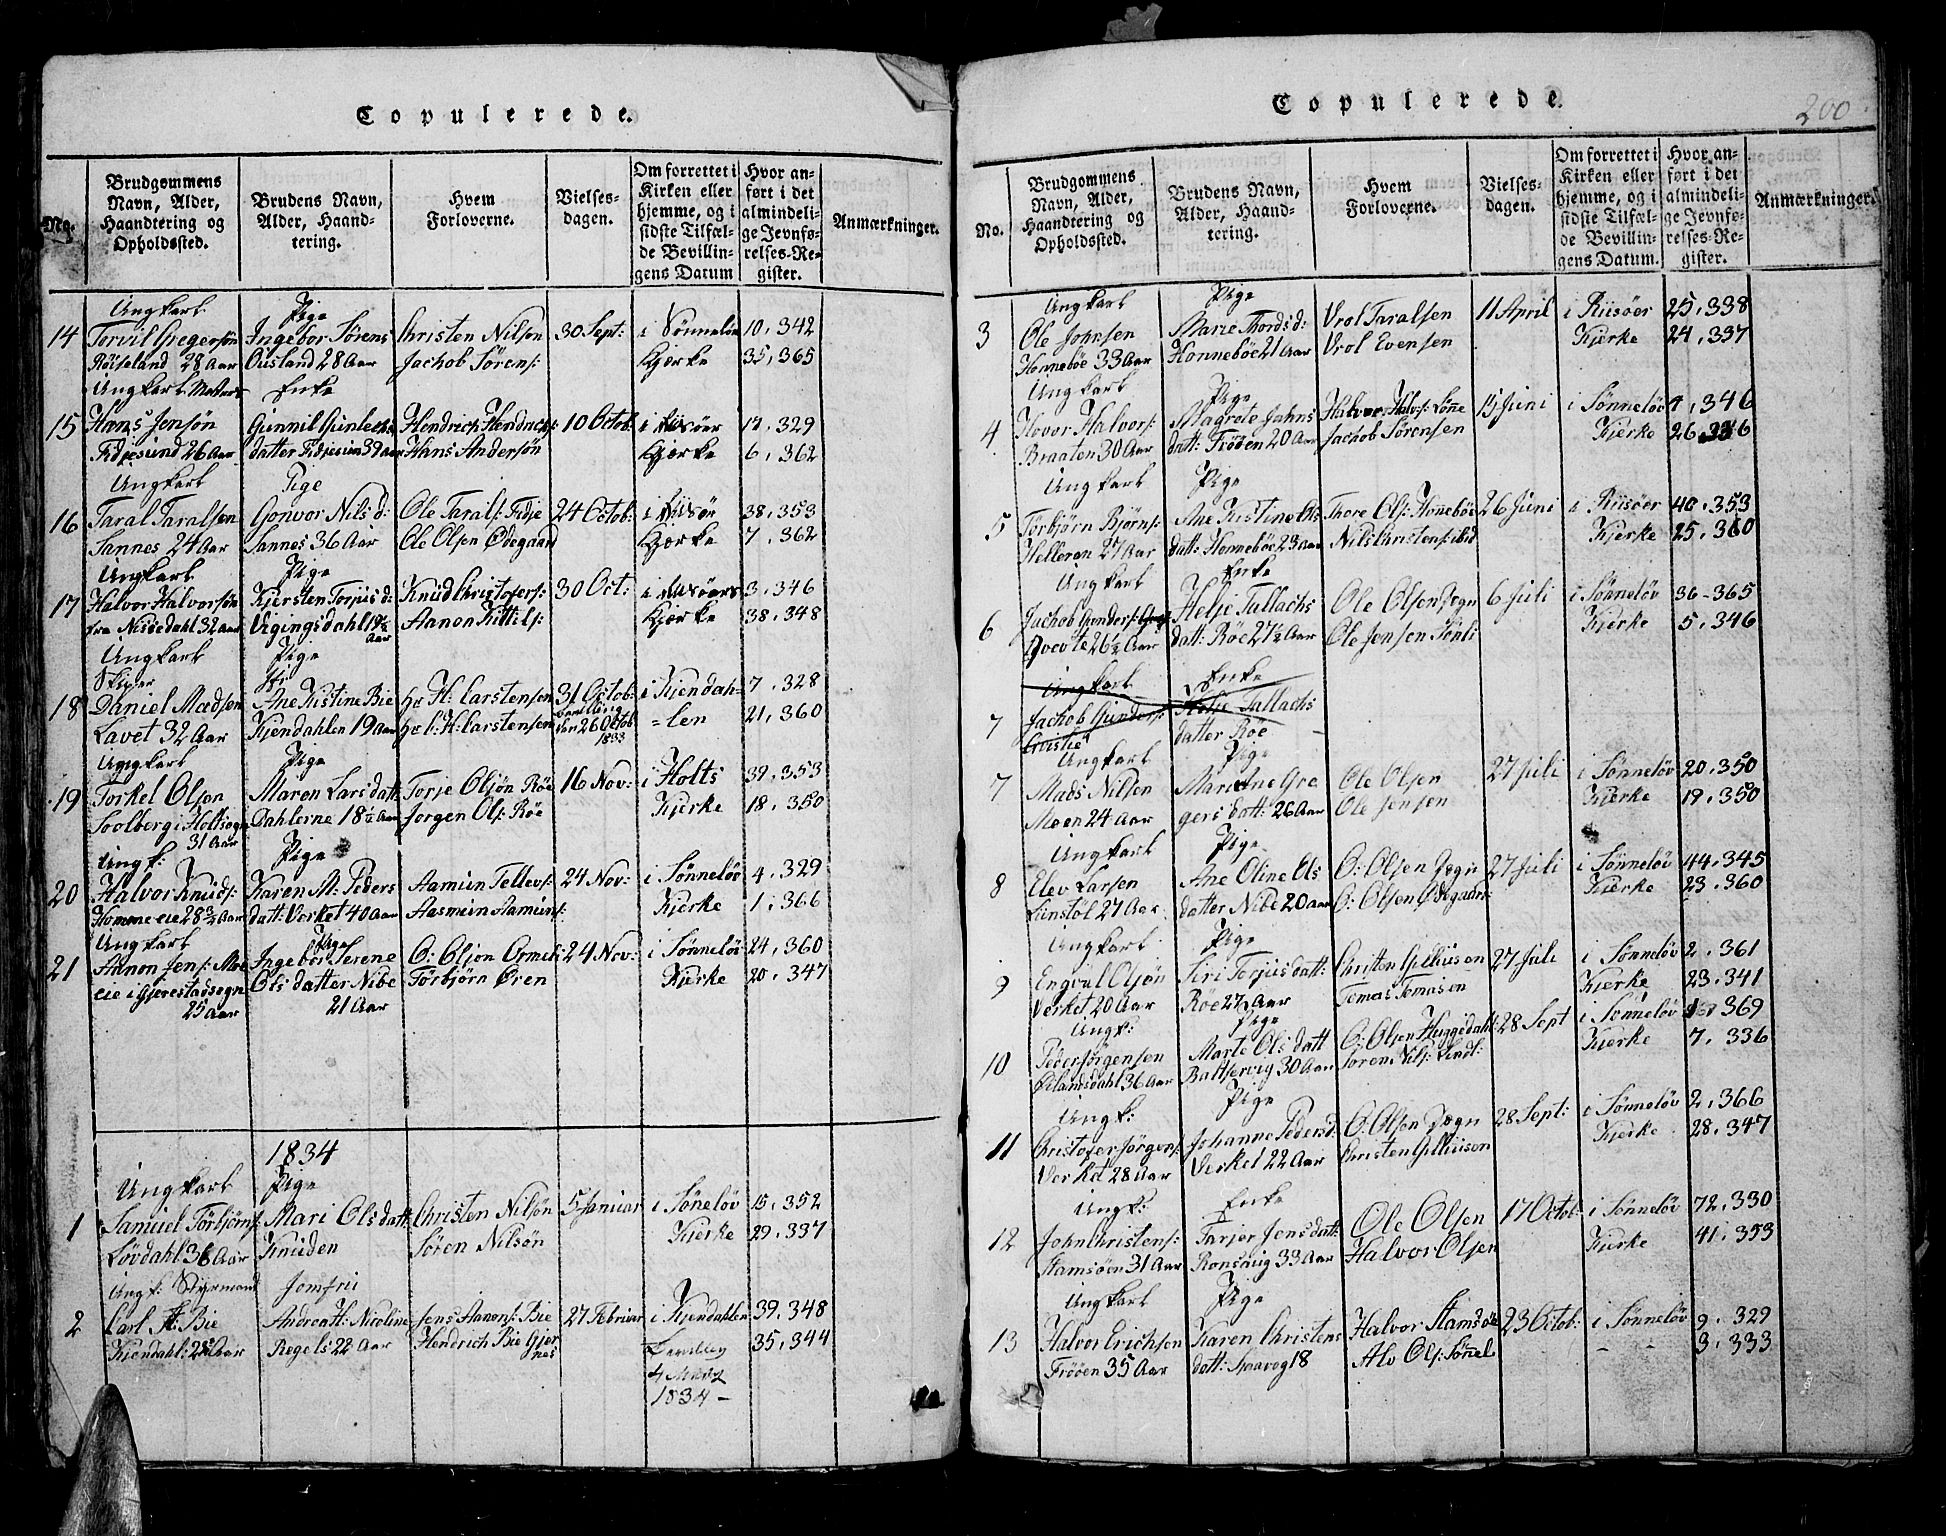 Copulerede.
No.
Brudgommens Navn, Alder, Haandtering og Opholdssted.
Brudens Navn, Alder, Haandtering.
Hvem Forloverne.
Vielsesdagen.
Om forrettet i Kirken eller hjemme, og i sidste Tilfælde Bevillingens Datum
Hvor anført i det almindelige Jevnførelses-Register.
Anmærkninger.
Ungkarl Pige
14 Torvil Gregersøn Ingebor Sørens Christen Nilson 30 Sept: i Sønneløv 10, 342
Røiseland 28 Aar Ousland 28 Aar Jachob Sørens: Kjerke 35, 365
Ungkarl Enke
15 Hans Jensøn Gunnil Gunlechs Hendrich Hendrichs: 10 Octob: i Riisøer 17, 329
Fidjesund 26 Aar datter Fidjesun 39 Aar Hans Andersøn Kjerke 6, 362
Ungkarl Pige
16 Taral Taralsen Gonvor Nils d: Ole Tarals: Fidje 24 Octob: i Riisør 38, 353
Sannes 24 Aar Sannes 36 Aar Ole Olsen Ødegaard Kjerke 7, 362
Ungkarl Pige
17 Halvor Halvorsøn Kjersten Torjus d: Knud Christofers: 30 Oct: i Riisøers 3, 346
fra Nissedahl 32 Aar Vigingsdahl 19½ Aar Aanon Kittils: Kjerke 38, 348
Ungkarl Pige
Skiper
18 Daniel Madsen Ane Kistine Bie Hr H: Carstensen 31 Octob: i Kjendah- 7, 328
Lavet 32 Aar Kjendahlen 19 Aar Hr C: H: Carstensen 1833 =len 21, 360
Ungkarl Pige
19 Torkel Olsen Maren Larsdatt: Torje Olsøn Røe 16 Nov: i Holts 39, 353
Soolberg i Holtsogn 31 Aar Dahlerne 18½ Aar Jørgen Ols: Røe Kjerke 18, 350
Ungk: Pige
20 Halvor Knuds: Karen M: Peders Aamun Tellevs: 24 Nov: i Sønneløv 4, 329
Homme eie 28¾ Aar datt: Verket 40 Aar Aasmun Aamuns: Kjerke 1, 366
Ungkarl Pige
21 Aanon Jens: Moe Ingebor Serene O: Olsen Ormel: 24 Nov: i Sønneløv 24, 360
eie i Gjerestadsogn 25 Aar Olsdatter Nibe 21 Aar Torbjørn Øren Kjerke 20, 347
1834
Ungkarl Pige
1 Samuel Torbjørns: Mari Olsdatt: Christen Nilsøn 5 Januar i Søneløv 15, 352
Løvdahl 36 Aar Knuden Søren Nilsøn Kjerke 29, 337
Ungk: Styrmand Jomfru
2 Carl H: Bie Andrea H: Nicoline Jens Aanons: Bie 27 Februar i Kjendahlen 39, 348
Kjendahl: 28 Aar Regels 22 Aar Hendrich Bie Gjernes 4 Marz 1834 35, 344
Copulerede.
200
No.
Brudgommens Navn, Alder, Haandtering og Opholdssted.
Brudens Navn, Alder, Haandtering.
Hvem Forloverne.
Vielsesdagen.
Om forrettet i Kirken eller hjemme, og i sidste Tilfælde Bevillingens Datum.
Hvor anført i det almindelige Jevnførelses-Register.
Anmærkninger.
Ungkarl Pige
3 Ole Johnsen Marie Thordsd: Vrol Taralsen 11 April i Riisøer 25, 338
Honnebøe 33 Aar Honnebøe 21 Aar Vrol Evensen Kjerke 24, 337
Ungkarl Pige
4 Hovor Halvors: Magrete Jahns Halvor Halvs: Lønne 15 Juni i Sønneløv 4, 346
Braaten 30 Aar datt: Frøøen 20 Aar Jachob Sørensen Kjerke 26, 336
Ungkarl Pige
5 Torbjørn Bjørns: Ane Kistine Ols Thore Ols: Honebøe 26 Juni i Riisøer 40, 353
Helleren 27 Aar datt: Honnebøe 23 Aar Nils Christens: ibid Kjerke 25, 360
Ungkarl Enke
6 Jachob Gunders: Helje Tallachs Ole Olsen Sogn 6 Juli i Sønneløv 36-365
26½ Aar datt: Røe 27½ Aar Ole Jensen Kjerke 5, 346
Ungkarl Enke
7 Jachob Gunders: Helje Tallachs
datter Røe
Ungkarl Pige
7 Mads Nilsen Mari Ane Gre Ole Olsen 27 Juli i Sønneløv 20, 350
Moen 24 Aar gers datt: 26 Aar Ole Jensen Kjerke 19, 350
Ungkarl Pige
8 Elev Larsen Ane Oline Ols O: Olsen Sogn 27 Juli i Sønneløv 44, 345
Lunstøl 27 Aar datter Nibe 20 Aar O: Olsen Ødegaard Kjerke 23, 360
Ungkarl Pige
9 Engvul Olsøn Siri Torjusdatt: Christen Gulliusen 27 Juli i Sønneløv 2, 361
Verket 20 Aar Røe 27 Aar Tomas Tomasen Kjerke 23, 341
Ungk: Pige
10 Peder Jørgensen Marte Olsdatt O: Olsen Huggedahl 28 Sept i Sønneløv 369
Øilandsdahl 36 Aar Baltservig 30 Aar Søren Nils: Lindl: Kjerke 7, 336
Ungk: Pige
11 Christofer Jørgens: Johanne Pedersd: O: Olsen Sogn 28 Sept: i Sønneløv 2, 366
Verket 28 Aar Verket 22 Aar Christen Gulliusen Kjerke 28, 347
Ungk: Enke
12 John Christens: Tarjer Jensdatt: Ole Olsen 17 Octob: i Sønneløv 72, 330
Stamsøen 31 Aar Ronsaug 33 Aar Halvor Olsen Kjerke 41, 353
Ungkarl Pige
13 Halvor Erichsen Karen Christens Halvor Stamsøe 23 Octob: i Sønneløv 9, 329
Frøøen 35 Aar datt: Svavog 18 Alv Ols: Sønel - - 3, 333